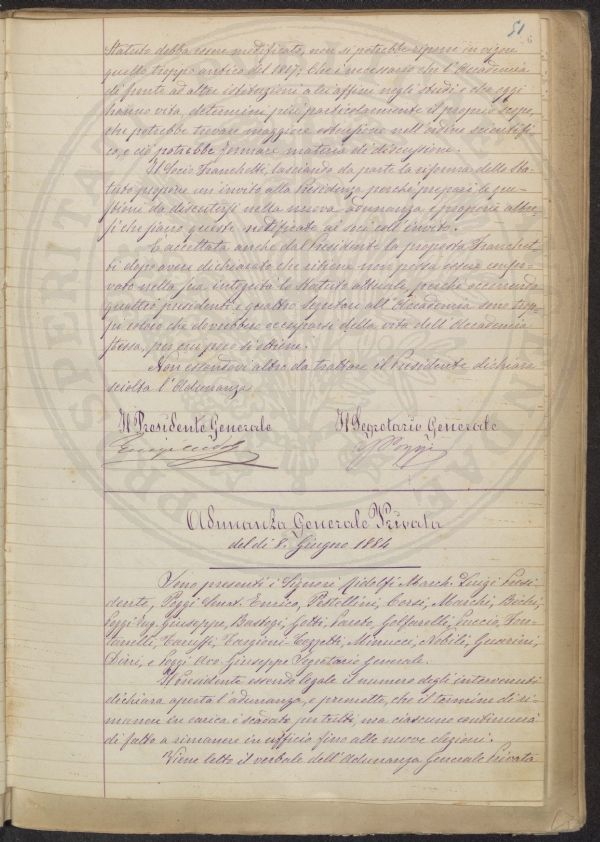 51
Statuto debba essere modificato, non si potrebbe riporre in vigore
quello troppo antico del 1817; che è necessario che l'Accademia
di fronte ad altre istituzioni a lei affini negli studi e che oggi
hanno vita, determini più particolarmente il proprio scopo,
che potrebbe trovare maggiore estensione nell'ordine scientifi-
co, e ciò potrebbe formare materia di discussione.
Il Socio Franchetti, lasciando da parte la riforma dello Sta-
tuto propone un invito alla Presidenza perchè prepari le que-
stioni da discutersi nella nuova adunanza e propone altre-
sì che siano queste notificate ai soci coll'invito.
È accettata anche dal Presidente la proposta Franchet-
ti dopo avere dichiarato che ritiene non possa essere conser-
vato nella sua integrità lo Statuto attuale, perchè occorrendo
quattro presidenti e quattro Segretari all'Accademia sono trop-
pi coloro che dovrebbero occuparsi della vita dell'Accademia
stessa, per cui poco si ottiene.
Non essendovi altro da trattare il Presidente dichiara
sciolta l'Adunanza
Il Presidente Generale Il Segretario Generale
G Poggi
Adunanza Generale Privata
del dì 8. Giugno 1884
Sono presenti i Signori Ridolfi March. Luigi Presi-
dente, Poggi Senat. Enrico, Pestellini, Corsi, Marchi, Bichi,
Poggi Ing. Giuseppe, Bastogi, Gotti, Golfarelli, Puccio, Fon-
tanelli, Caruffi, Targioni-Tozzetti, Minucci, Nobili, Guarini,
Dini, e Poggi Avv. Giuseppe Segretario Generale.
Il Presidente essendo legale il numero degli intervenuti
dichiara aperta l'adunanza, e premette, che il termine di ri-
manere in carica è scaduto per tutti, ma ciascuno continuerà
di fatto a rimanere in ufficio fino alle nuove elezioni.
Viene letto il verbale dell'Adunanza Generale Privata